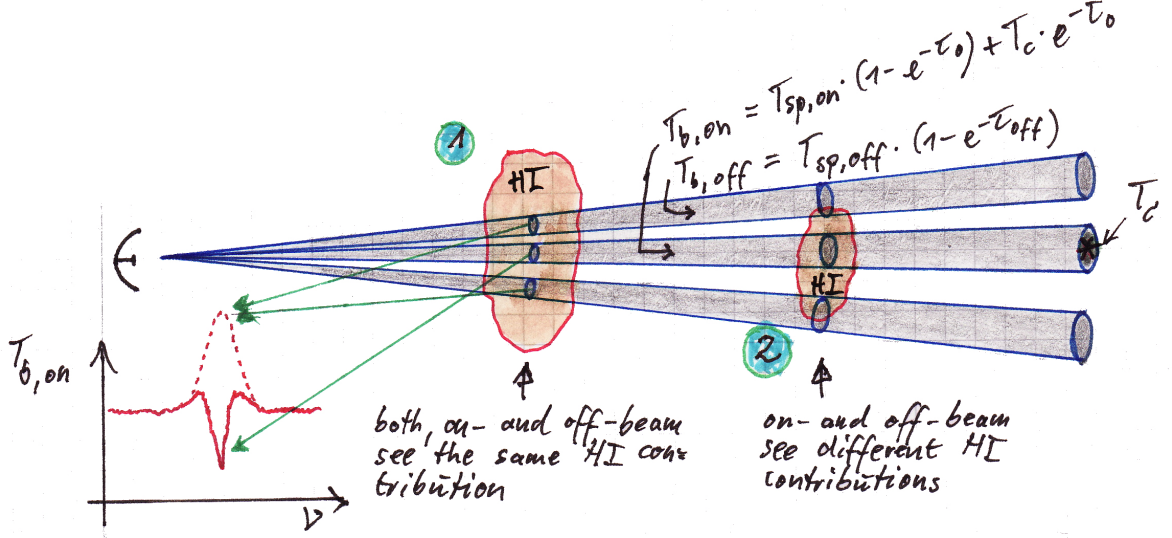 T_b,on = T_sp,on · (1 - e^-τ_0) + T_c · e^-τ_0
T_b,off = T_sp,off · (1 - e^-τ_off)
1
HI
T_c
HI
2
T_b,on
ν
both, on- and off-beam
see the same HI con=
tribution
on- and off-beam
see different HI
contributions